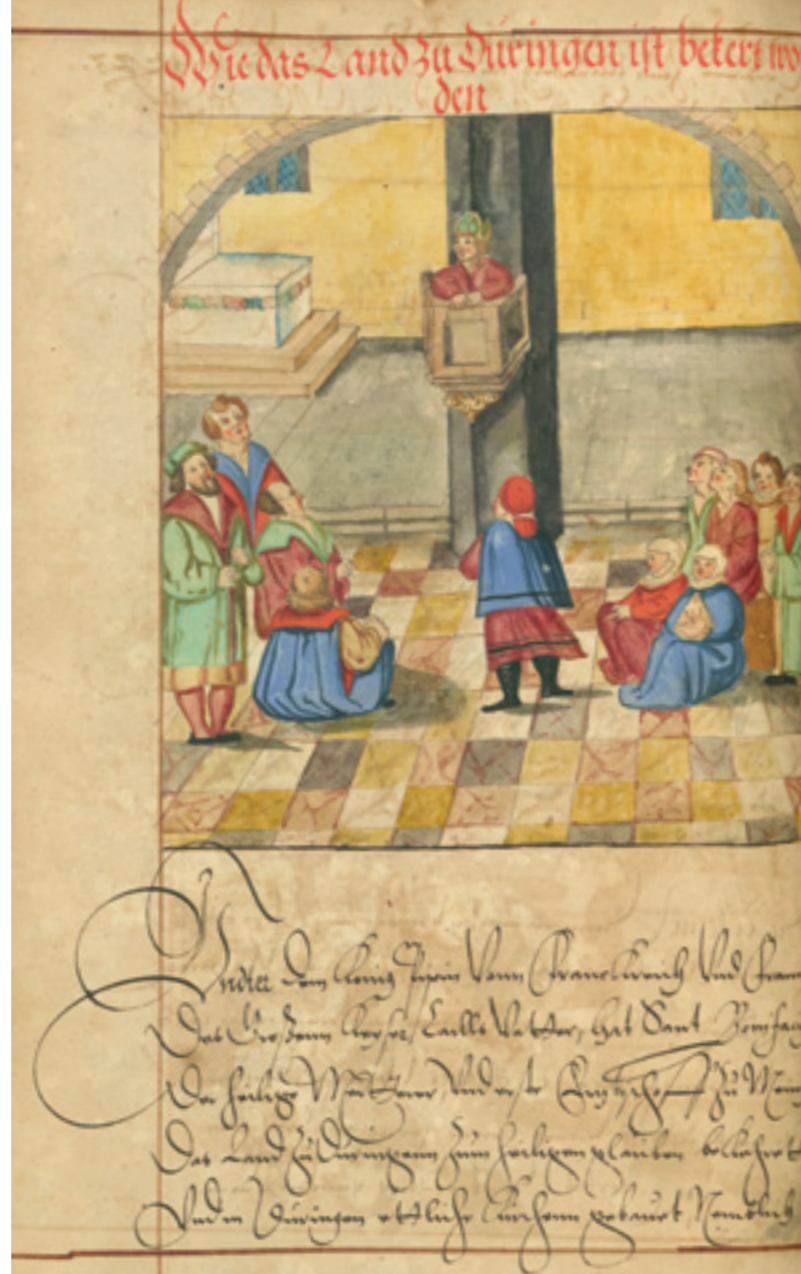 Wie das Land zu Düringen ist bekert wo
den
Undter dem König Pipin Vonn Franckreich Vnd Franc
Des Großenn Keyser Carlls Vatter, hat Sant Bonifac
Der heilige Merterer, Vnd erste Ertzbischoff zu Mein
Das Land zu Duringenn zum heiligen glauben bekehret
Vnd in Düringen ettliche Kirchenn gebauet Nemblich